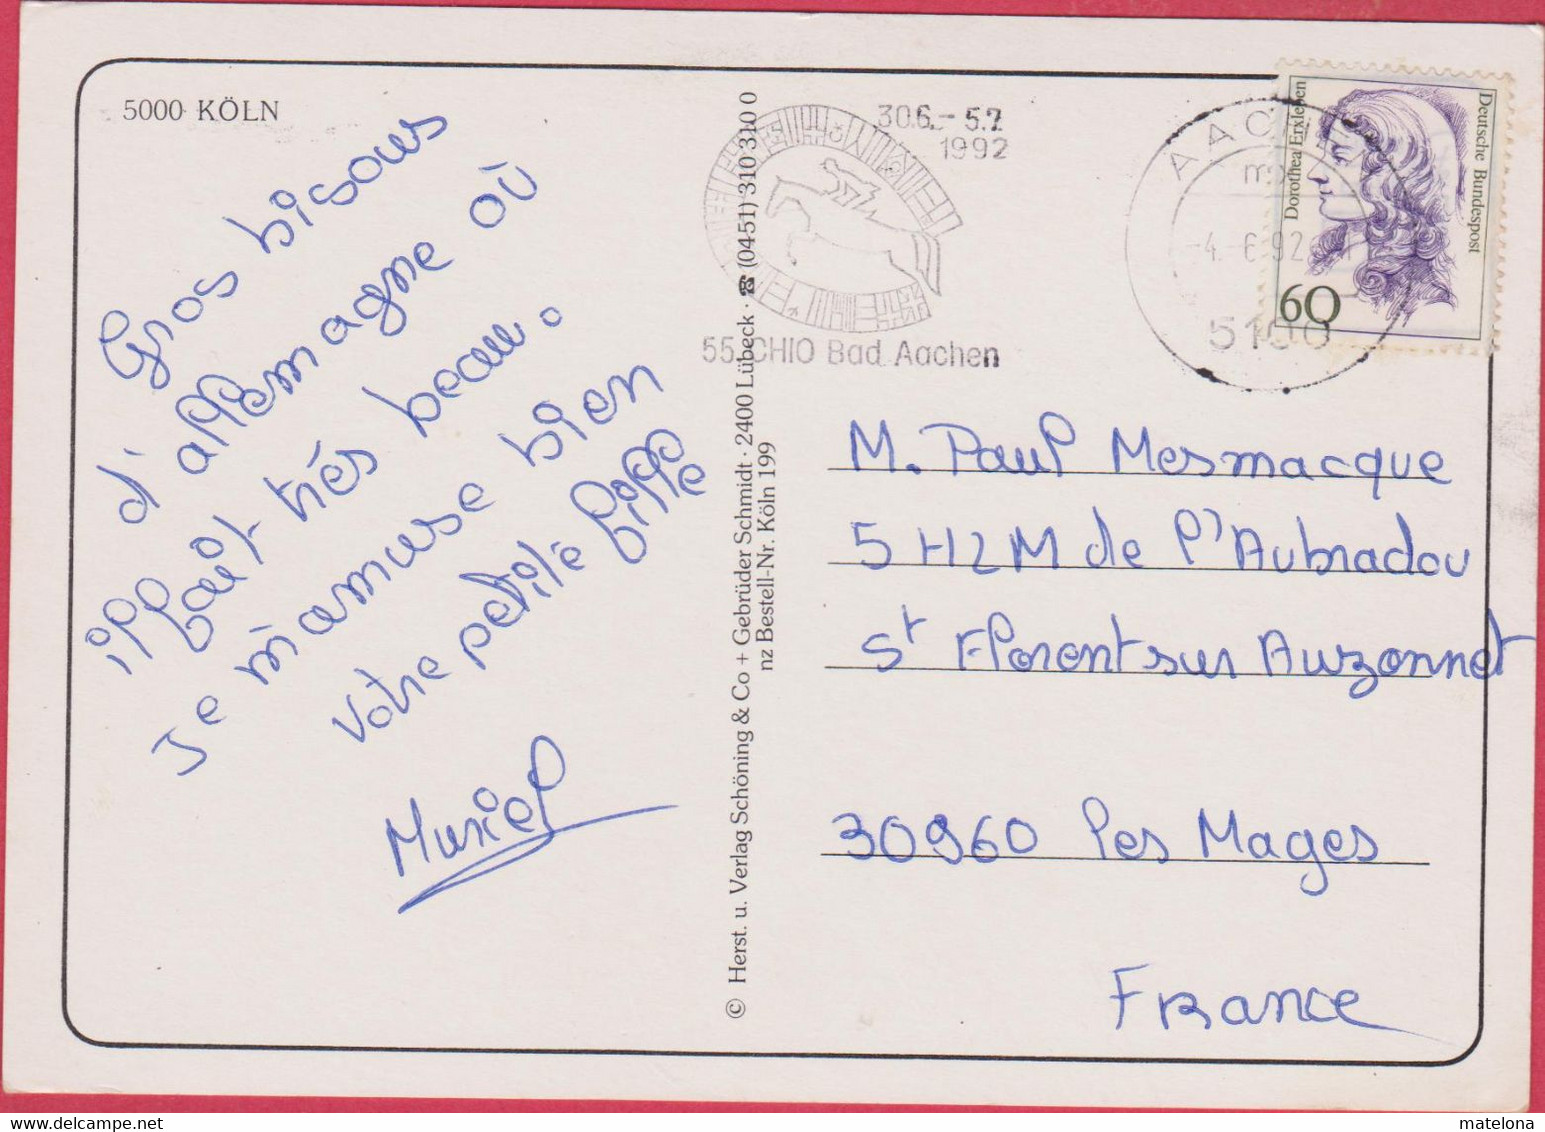 5000 KÖLN
Gros bisous
d'allemagne où
il fait très beau.
Je m'amuse bien
votre petite fille
Muriel
© Herst. u. Verlag Schöning & Co + Gebrüder Schmidt · 2400 Lübeck · ☎ (0451) 310 310 0
nz Bestell-Nr. Köln 199
30.6.-5.7.
1992
55. CHIO Bad Aachen
AACHEN
-4.-6.92
5100
Deutsche Bundespost
Dorothea Erxleben
60
M. Paul Mesmacque
5 HLM de l'Aubradou
St Florent sur Auzonnet
30960 les Mages
France
matelona